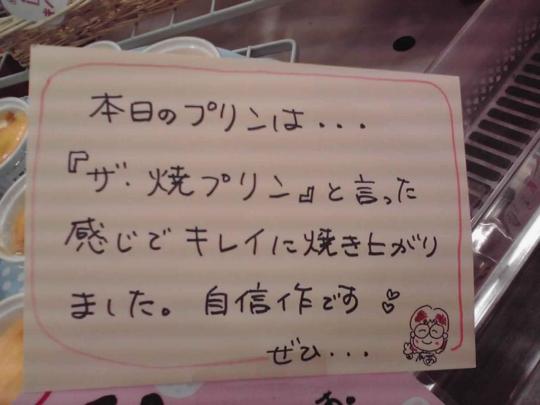 本日のプリンは...
『ザ・焼プリン』と言った
感じでキレイに焼き上がり
ました。自信作です♡
ぜひ...